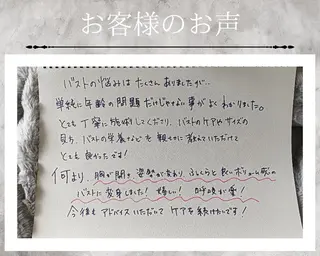 お客様のお声
バストの悩みはたくさんありましたが…
単純に年齢の問題だけじゃない事がよくわかりました。
とても丁寧に施術してくださり、バストのケアやサイズの
見方、バストの栄養なども親切に教えていただけて
とても良かったです！
何より、胸が開き姿勢が変わり、ふっくらと良いボリューム感の
バストに変身しました！嬉しい！呼吸が楽！
今後も アドバイスいただいて ケアを続けたいです！